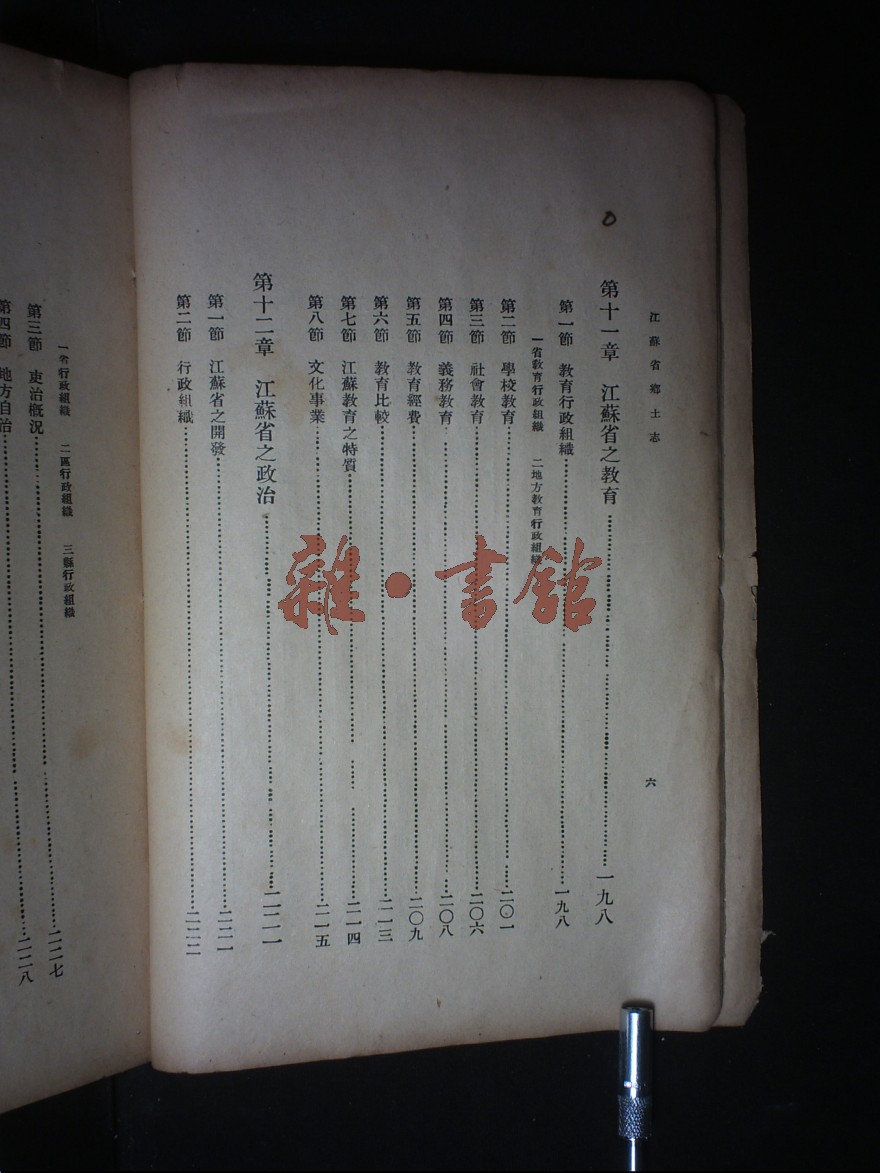 江蘇省鄉土志
六
第十一章 江蘇省之教育……一九八
第一節 教育行政組織……一九八
一省教育行政組織 二地方教育行政組織
第二節 學校教育……二〇一
第三節 社會教育……二〇六
第四節 義務教育……二〇八
第五節 教育經費……二〇九
第六節 教育比較……二一三
第七節 江蘇教育之特質……二一四
第八節 文化事業……二一五
第十二章 江蘇省之政治……二二一
第一節 江蘇省之開發……二二一
第二節 行政組織……二二二
一省行政組織 二區行政組織 三縣行政組織
第三節 吏治概況……二二七
第四節 地方自治……二二八
雜·書館